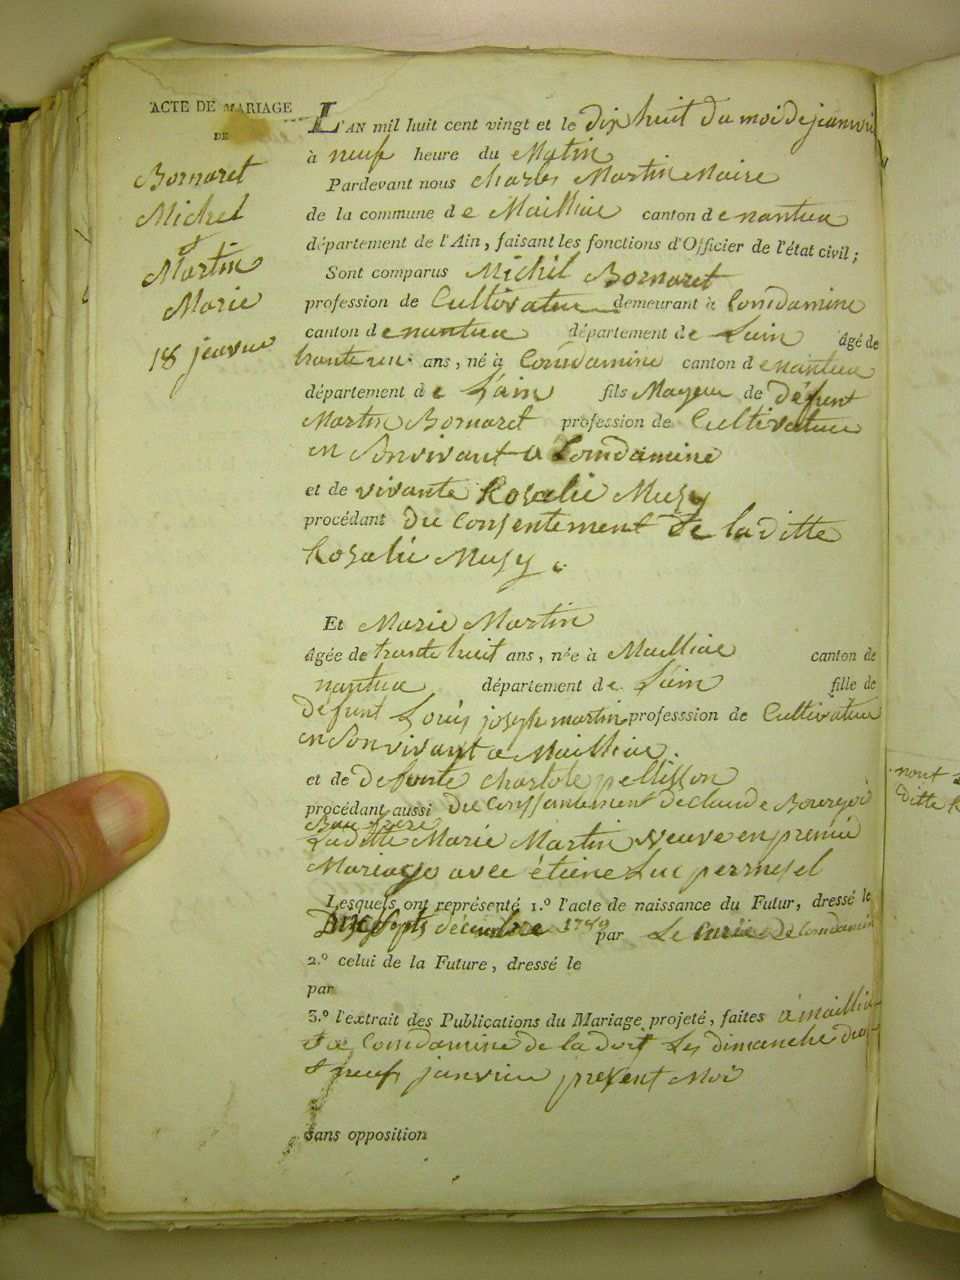 ACTE DE MARIAGE
DE
Bornaret
Michel
&
Martin
Marie
18 janvier
L'AN mil huit cent vingt et le dix huit du moi de janvie
à neuf heure du Matin
Pardevant nous charles Martin Maire
de la commune de Mailliac canton de nantua
département de l'Ain, faisant les fonctions d'Officier de l'état civil;
Sont comparus Michel Bornaret
profession de Cultivateur demeurant à Comdamine
canton de nantua département de Lain âgé de
trante un ans, né à Comdamine canton de nantua
département de L'ain fils Mageur de défunt
Martin Bornaret profession de Cultivateur
en Sonvivant a Comdamine
et de vivante Rosalie Musy
procédant du Consentement de laditte
Rosalie Musy.
Et Marie Martin
âgée de trante huit ans, née à Mailliac canton de
nantua département de Lain fille de
défunt Louis joseph martin professsion de Cultivateur
en Sonvivant a Mailliac.
et de defunte charlote pellisson
procédant aussi du Conssantement de claude Bourgoi
Bau frere
Laditte Marie Martin veuve en premié
Mariage avec étiene Luc
Lesquels ont représenté 1.º l'acte de naissance du Futur, dressé le
Dix Septs décembre 1789 par Le Curée de Comdamin
2.º celui de la Future, dressé le
par
3.º l'extrait des Publications du Mariage projeté, faites à mailliac
& a Comdamine de la doit Les dimanche deux
& neuf janvier present Moi
sans opposition
nont
ditte